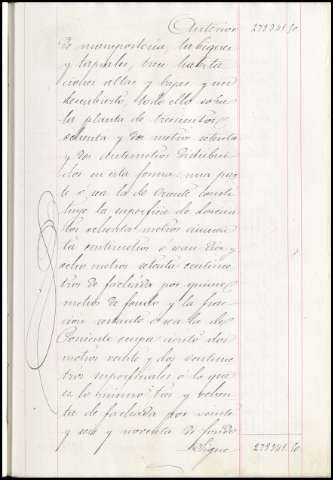 Anterior 279341.50
de mamposteria, tabiques
y tapiales, tres habita
ciones altas y bajas y un
descubierto, todo ello sobre
la planta de trescientos
ochenta y dos metros setenta
y dos centimetros distribui
dos en esta forma: una par
te ó sea la de Oriente consti
tuye la superficie de doscien
tos ochenta metros cincuen
ta centimetros ó sean diez y
ocho metros setenta centime
tros de fachada por quince
metros de fondo y la frac
cion restante ó sea la de
Poniente ocupa ciento dos
metros veinte y dos centime
tros superficiales ó lo que
es lo mismo tres y ochen
ta de fachada por veinte
y seis y noventa de fondo
Sigue 279341.50